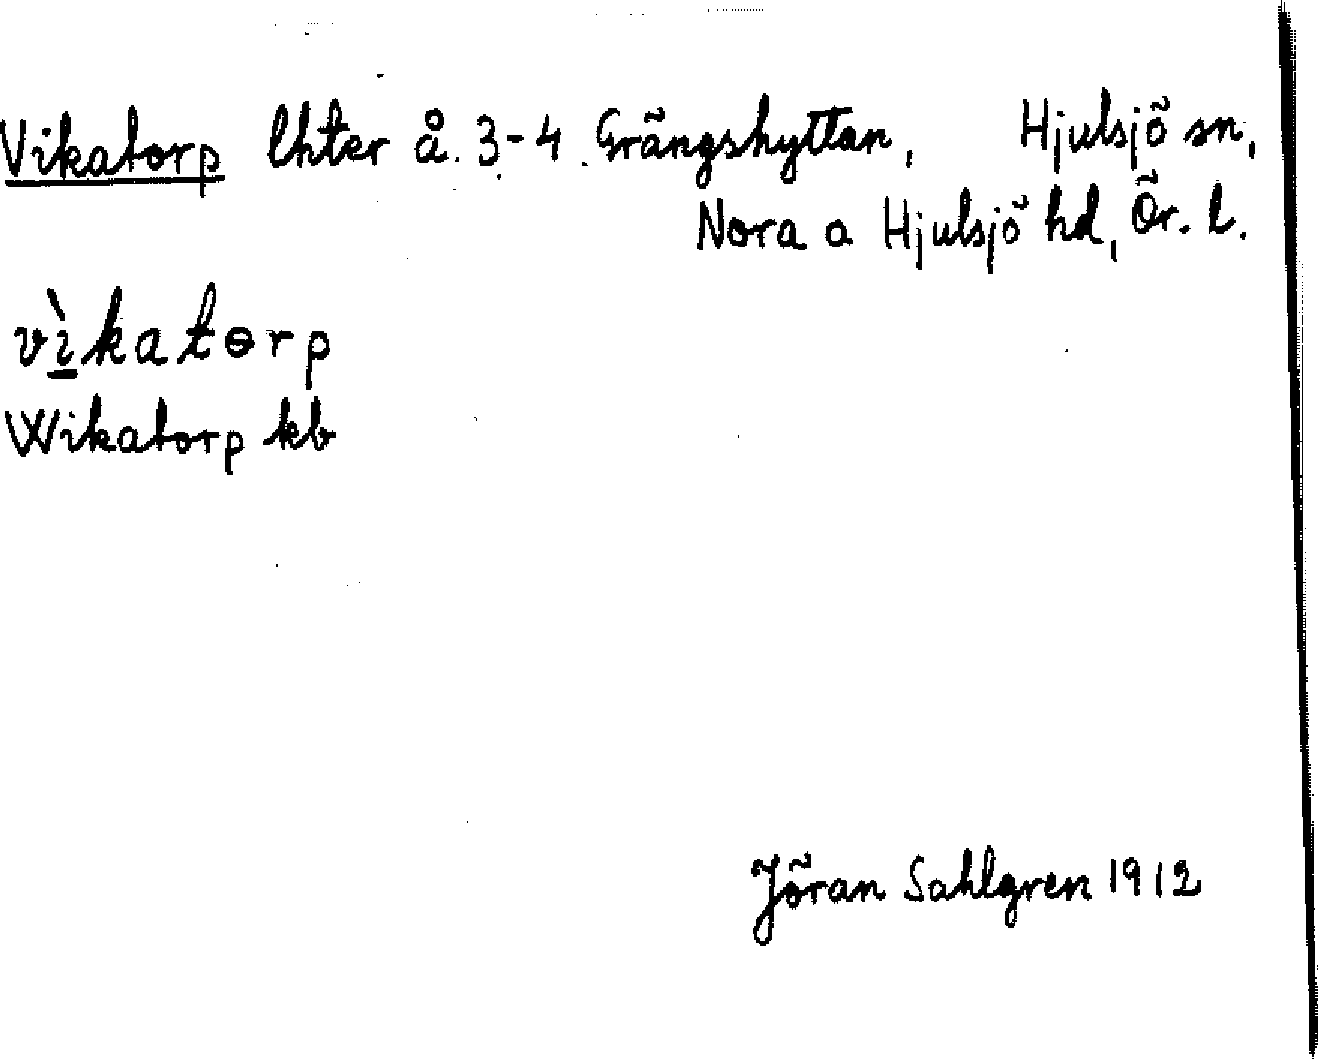 Vikatorp lhter å. 3-4 Grängshyttan, Hjulsjö sn,
Nora o Hjulsjö hd, Ör. l.
vìkatɵrp
Wikatorp kb
Jöran Sahlgren 1912